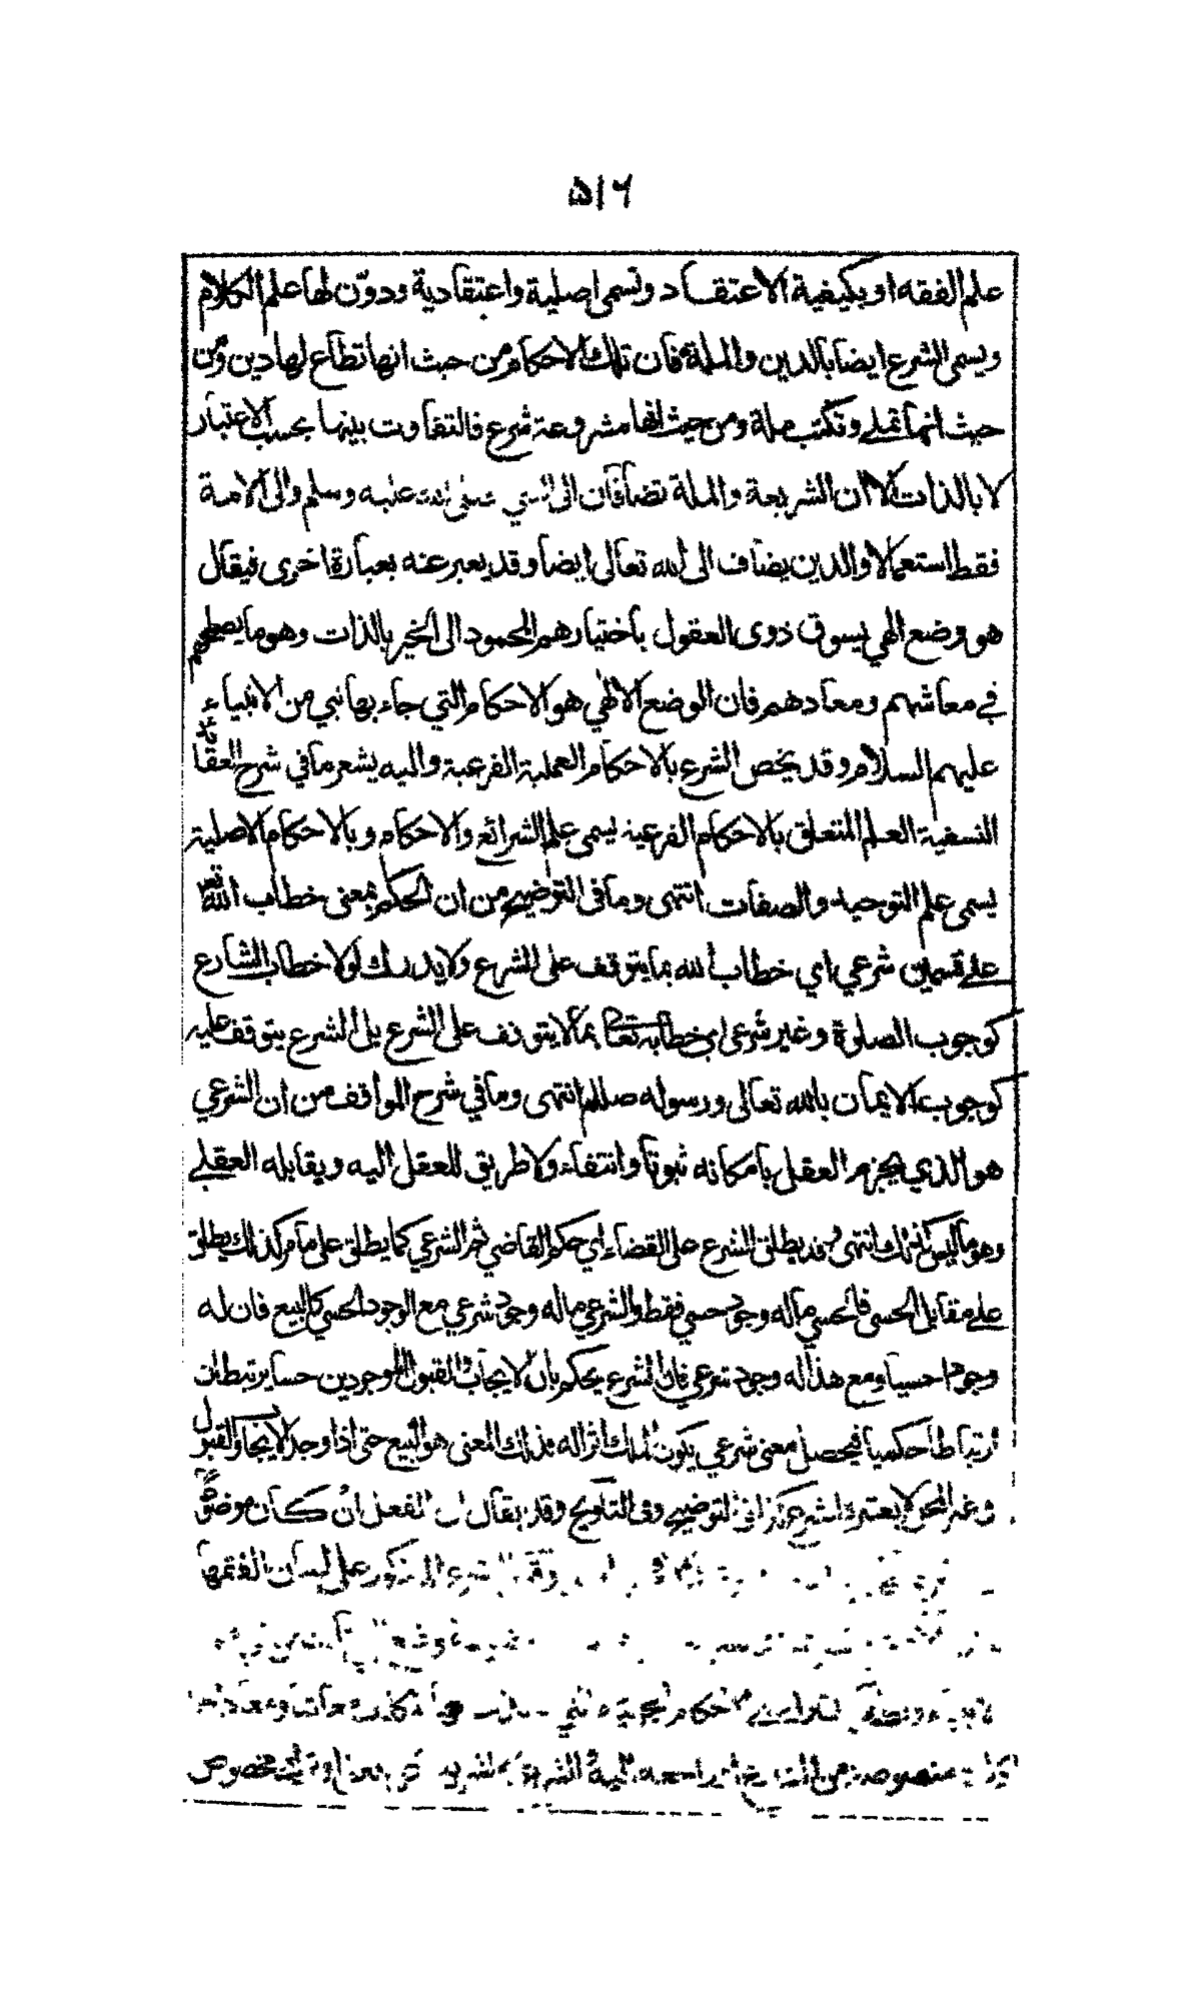 ۵۱۶
علم الفقه او بكيفية الاعتقاد وتسمى اصلية واعتقادية ودوّن لها علم الكلام
ويسمى الشرع ايضا بالدين والملة فان تلك الاحكام من حيث انها تطاع لها دين ومن
حيث انها تملى وتكتب ملة ومن حيث انها مشروعة شرع فالتفاوت بينها بحسب الاعتبار
لا بالذات الا ان الشريعة والملة تضافان الى النبي صلى الله عليه وسلم والى الامة
فقط استعمالا والدين يضاف الى الله تعالى ايضا وقد يعبر عنه بعبارة اخرى فيقال
هو وضع الهي يسوق ذوى العقول باختيارهم المحمود الى الخير بالذات وهو ما يصلحهم
في معاشهم ومعادهم فان الوضع الالهي هو الاحكام التي جاء بها نبي من الانبياء
عليهم السلام وقد يخص الشرع بالاحكام العملية الفرعية واليه يشعر ما في شرح العقائد
النسفية العلم المتعلق بالاحكام الفرعية يسمى علم الشرائع والاحكام وبالاحكام الاصلية
يسمى علم التوحيد والصفات انتهى وما فى التوضيح من ان الحكم بمعنى خطاب الله تع
على قسمين شرعي اي خطاب الله بما يتوقف على الشرع ولا يدرك لولا خطاب الشارع
كوجوب الصلوة وغير شرعى اى خطابه تعالى بما لا يتوقف على الشرع بل الشرع يتوقف عليه
كوجوب الايمان بالله تعالى ورسوله صللم انتهى وما في شرح المواقف من ان الشرعي
هو الذي يجزم العقل بامكانه ثبوتا وانتفاء ولا طريق للعقل اليه ويقابله العقلي
وهو ما ليس كذلك انتهى وقد يطلق الشرع على القضاء اي حكم القاضي ثم الشرعي كما يطلق على ما مر كذلك يطلق
على مقابل الحسى فالحسي ما له وجود حسي فقط والشرعي ما له وجود شرعي مع الوجود الحسي كالبيع فان له
وجودا حسيا ومع هذا له وجود شرعي فان الشرع يحكم بان الايجاب والقبول الموجودين حسا يرتبطان
ارتباطا حكميا فيحصل معنى شرعي يكون الملك اثرا له فذلك المعنى هو البيع حتى اذا وجد الايجاب والقبول
فى غير المحل لا يعتبره الشرع كذا فى التوضيح وفى التلويح وقد يقال ان الفعل ان كان موضوعا
الشرع المذكور على لسان الفقهاء
احكام
منصوصة من الشارع